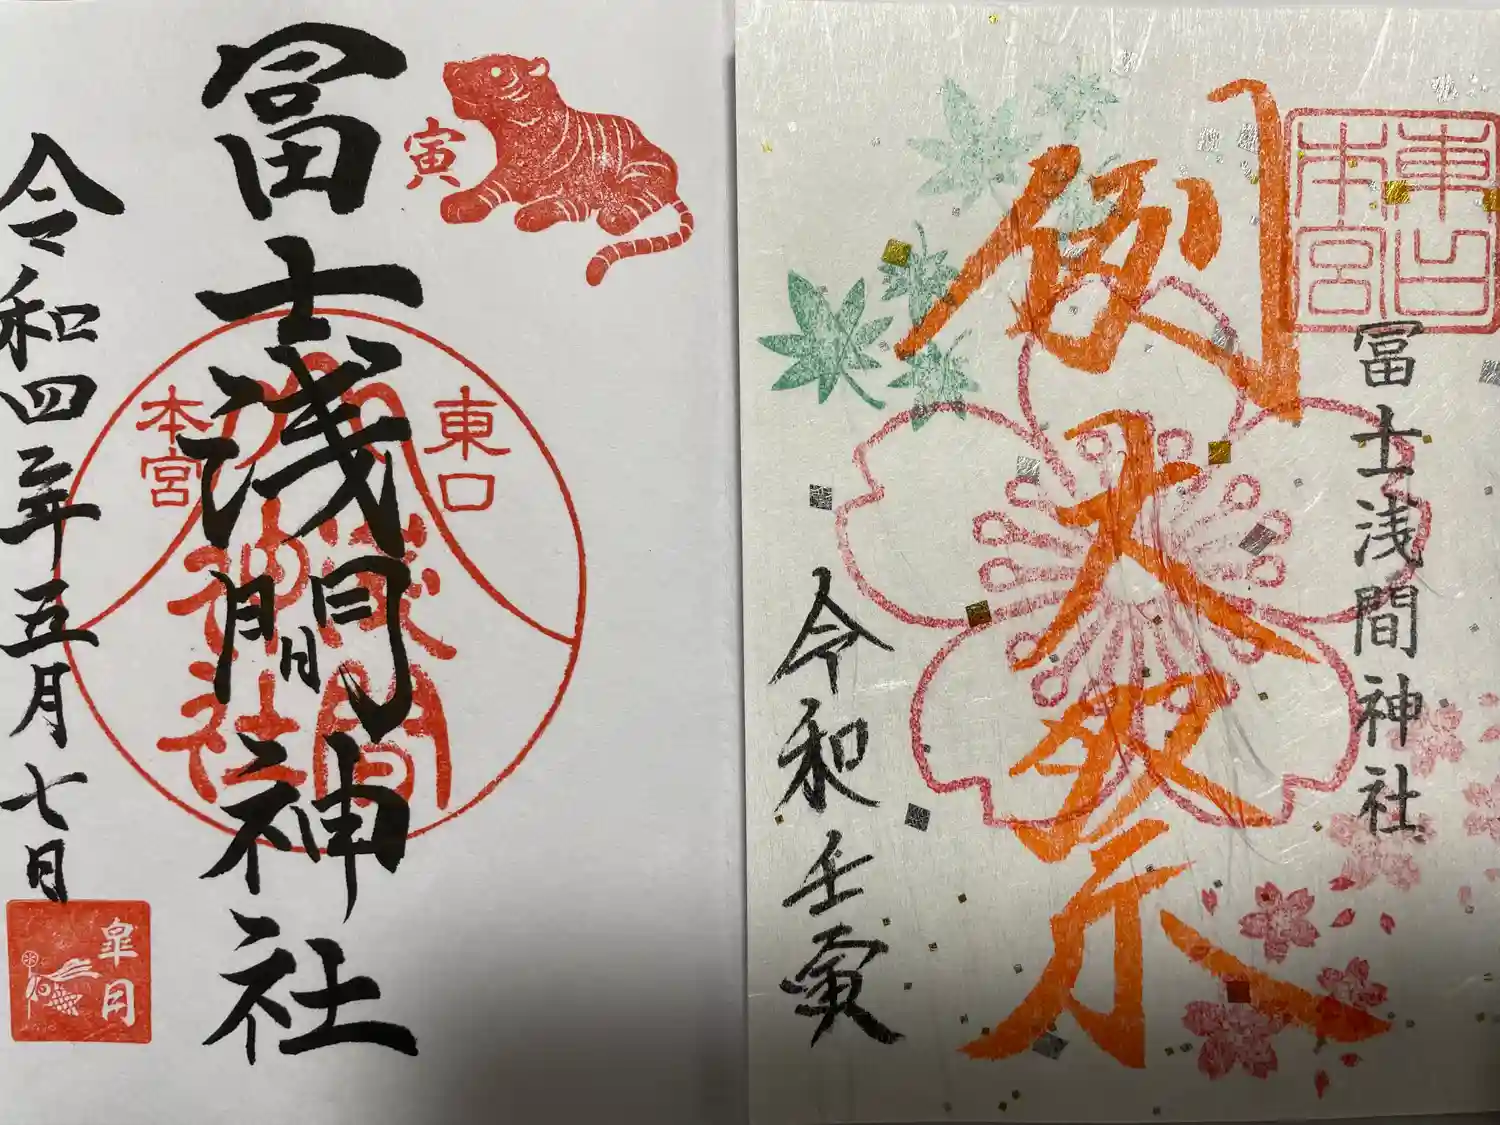 東口
本宮
冨士浅間神社
例大祭
令和壬寅
寅
冨士浅間神社
東口
本宮
浅間
神社
令和四年五月七日
皐月